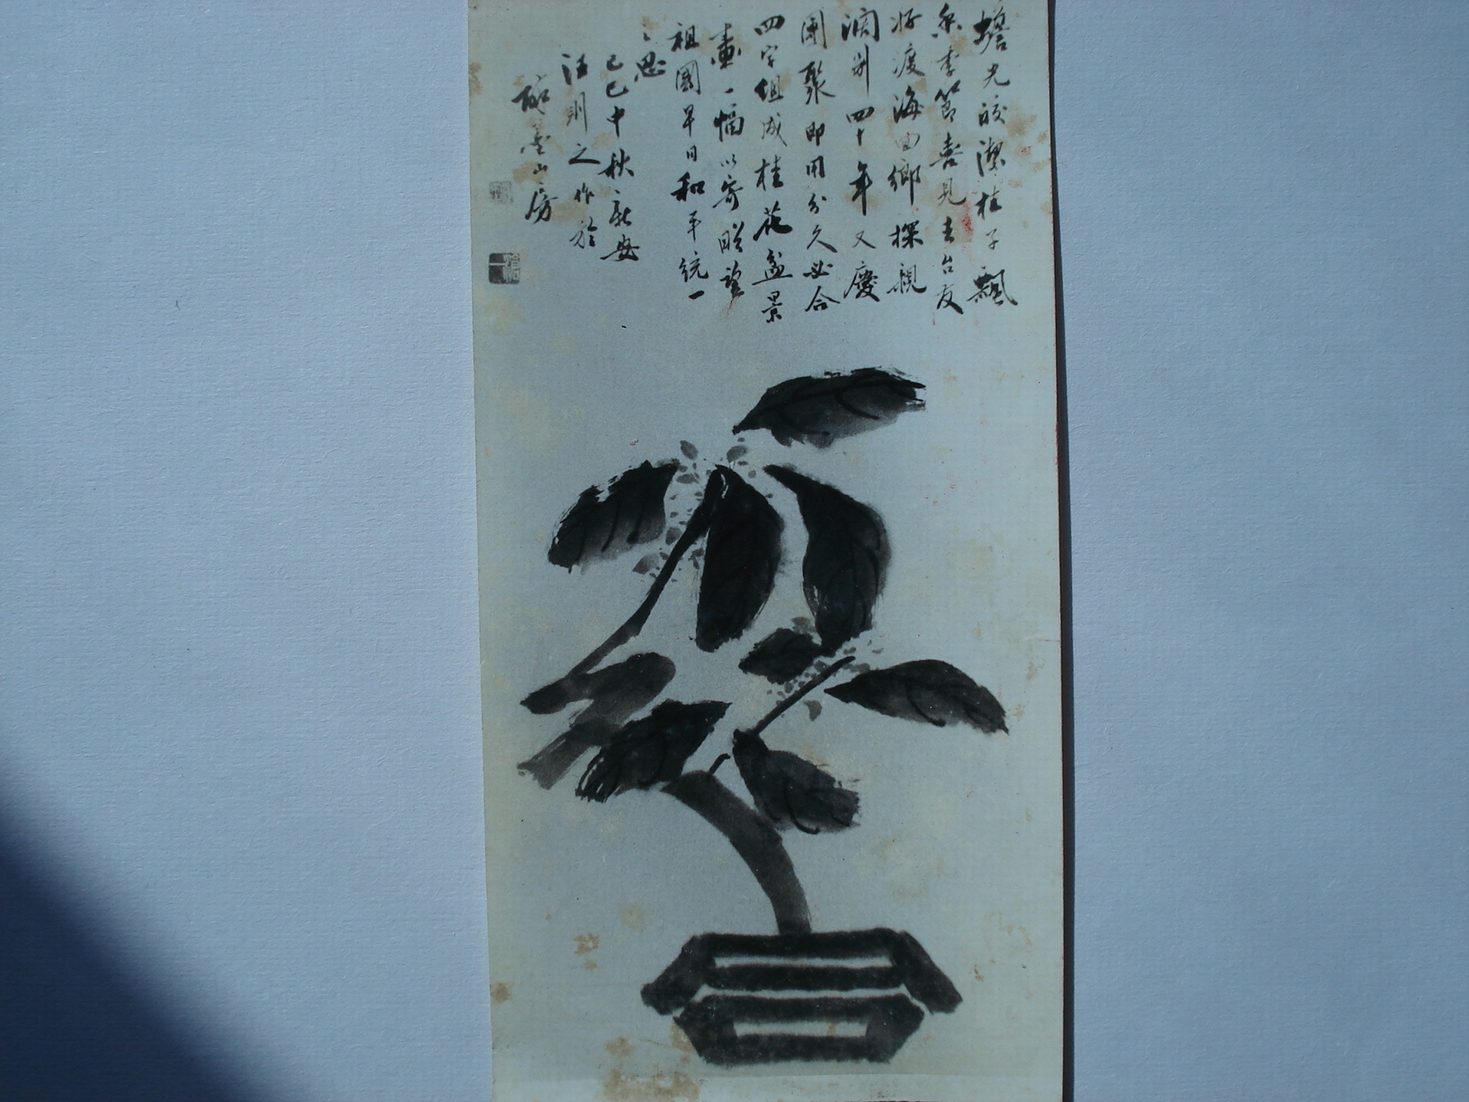 蟾光皎潔桂子飄
香季節喜見去台友
好渡海回鄉探親
濶别四十年又慶
團聚即用分久必合
四字組成桂花盆景
畫一幅以寄盼望
祖國早日和平統一
之思
己巳中秋新安
汪則之作於
墨山房